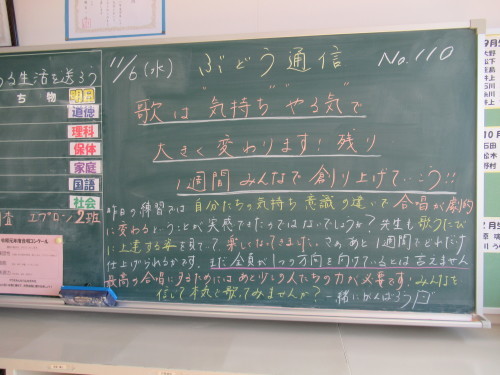 11/6(水) ぶどう通信 No.110
歌は"気持ち""やる気"で
大きく変わります!残り
1週間みんなで創り上げていこう!!
昨日の練習では自分たちの気持ち意識の違いで合唱が劇的
に変わるということが実感できたのではないでしょうか?先生も歌うたび
に上達する姿を見てて楽しくなってきました。このあと1週間でどれだけ
仕上げられるかです。まだ全員が1つの方向を向けているとは言えません
最高の合唱にするためにはあと少しの人たちの力が必要です。みんなを
信じて本気で歌ってみませんか?一緒にがんばろう
る生活を送ろう
ち物 明日
道徳
理科
保体
家庭
国語
社会
エプロン2班
9月
大野
井上
石川
井上
10
石田
松本
野村